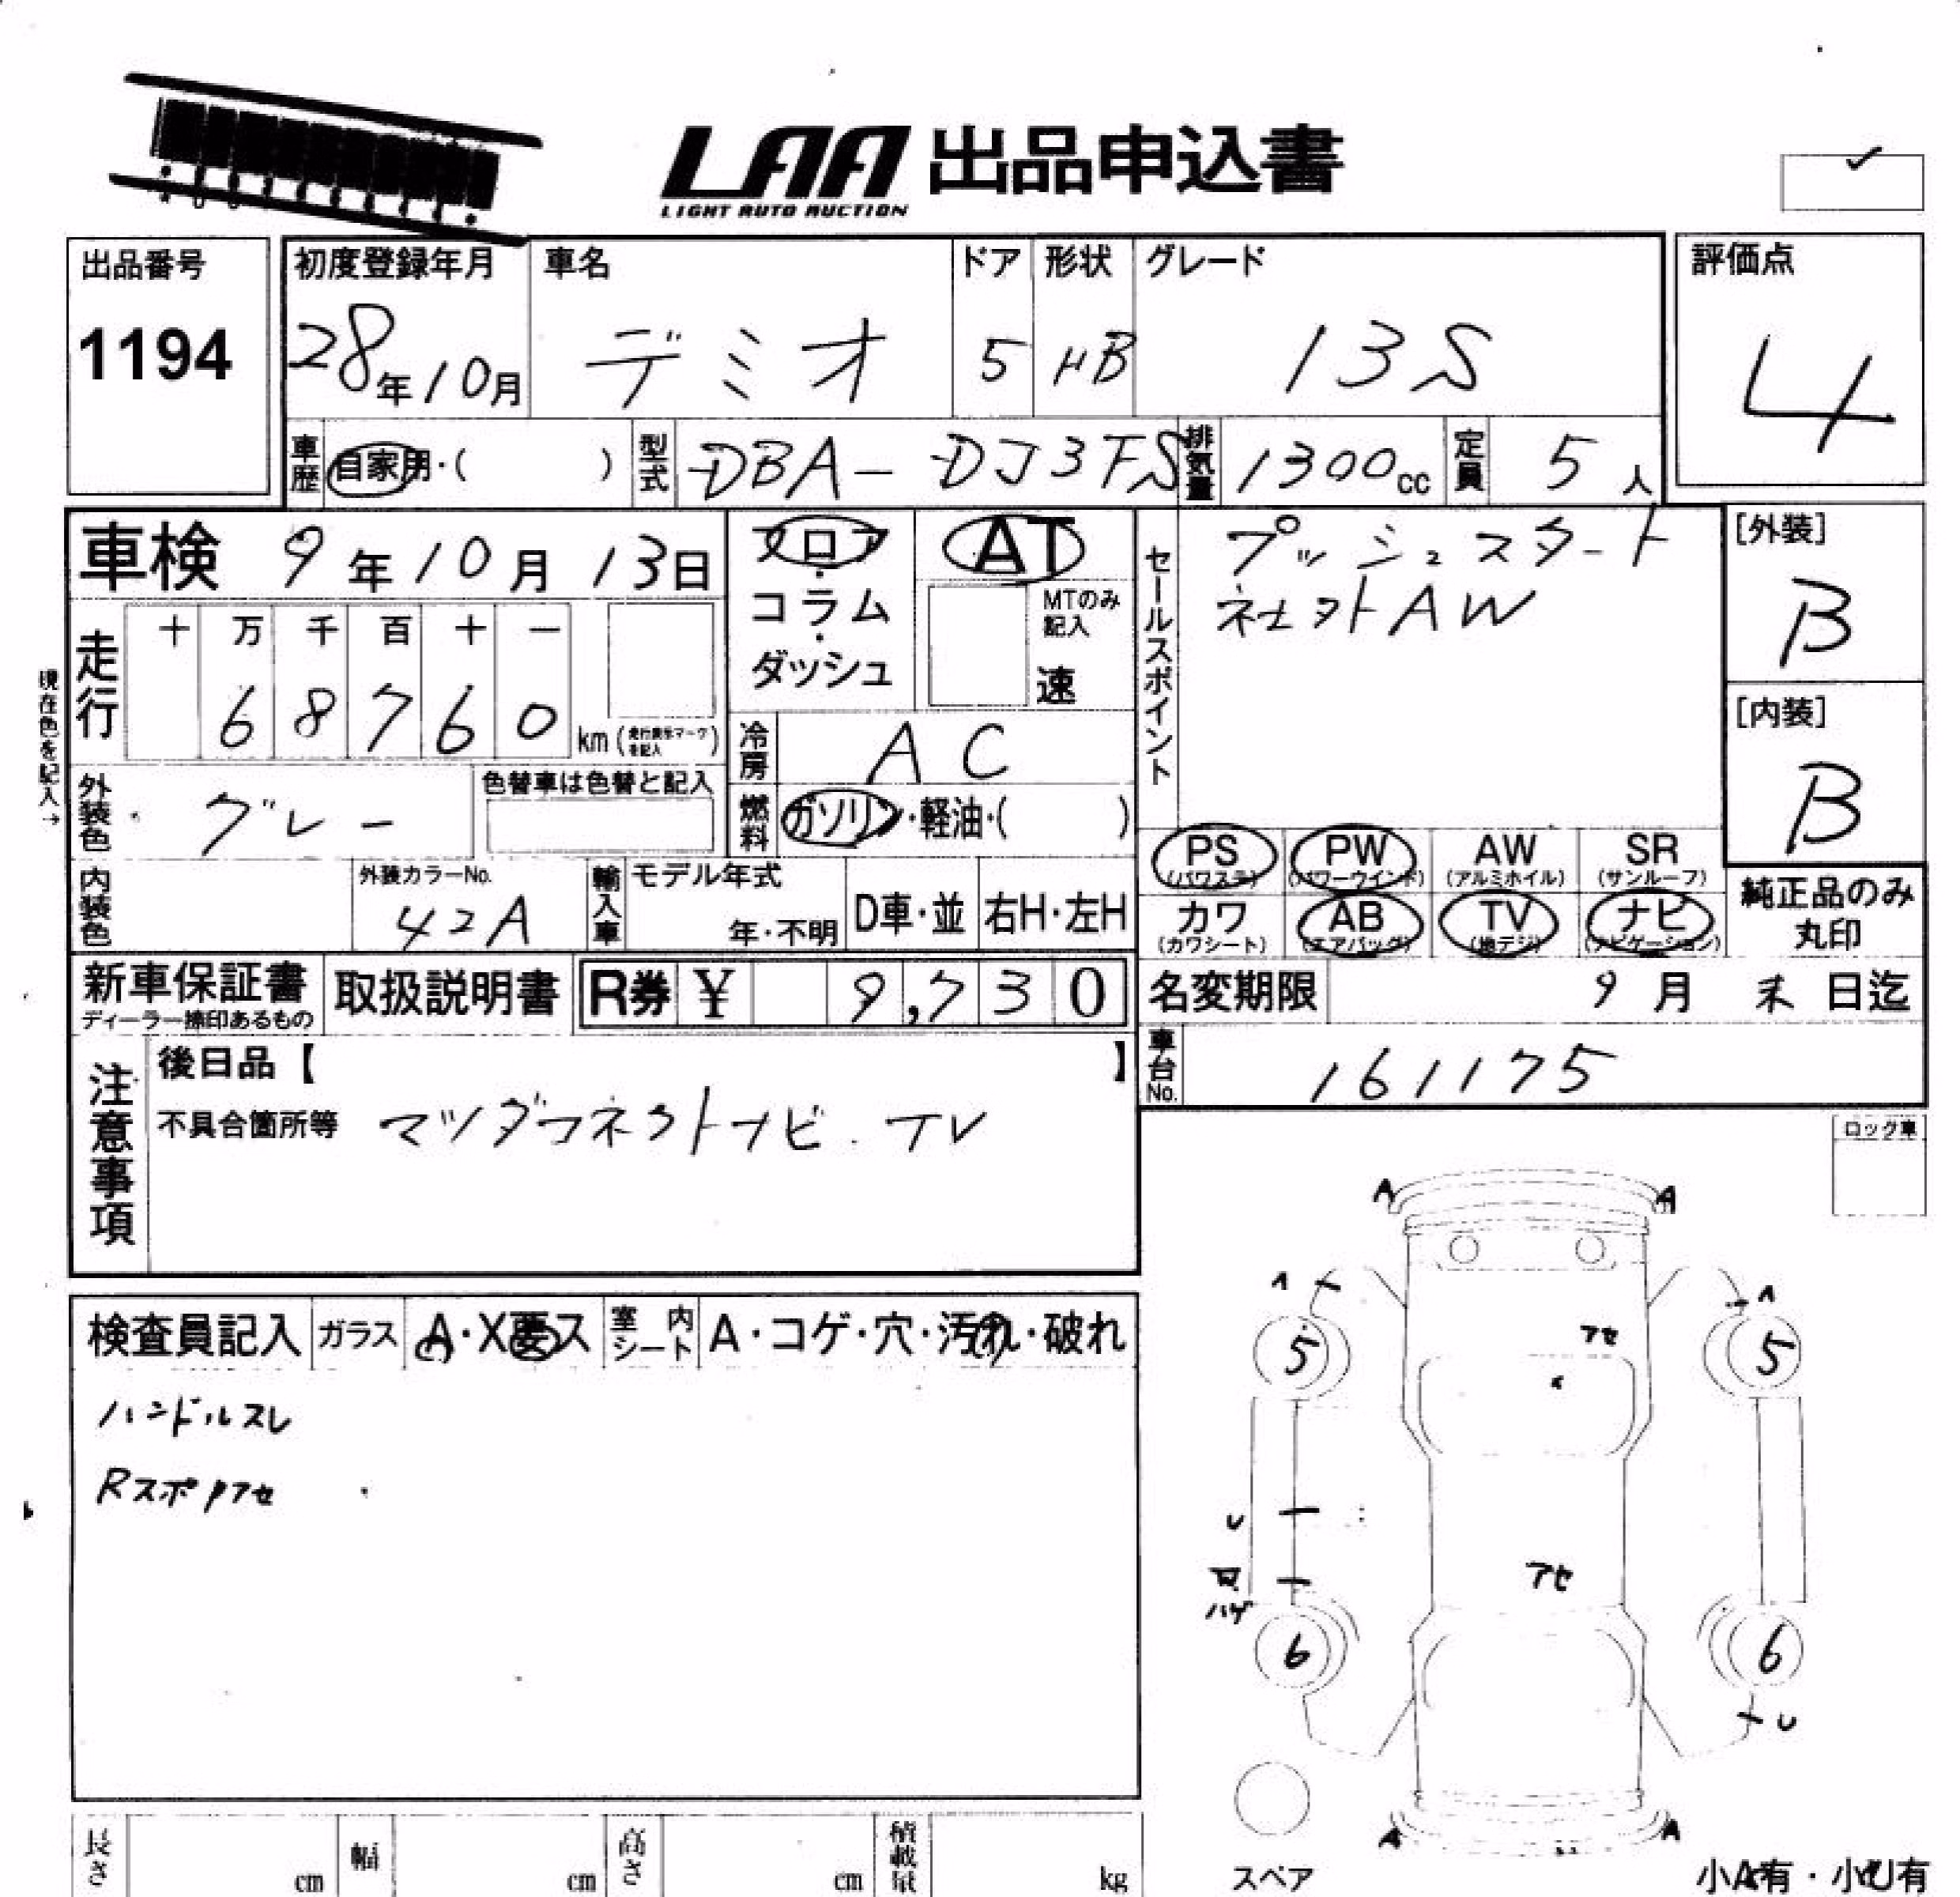 LAA 出品申込書
LIGHT AUTO AUCTION
出品番号
1194
初度登録年月
28年10月
車名
デミオ
ドア
5
形状
HB
グレード
13S
評価点
4
車歴 自家用・( )
型式 DBA-DJ3FS
排気量 1300cc
定員 5人
車検 9年10月13日
走行
十 万 千 百 十 一
6 8 7 6 0 km (走行表示マークを記入)
現在色を記入→
外装色 グレー
色替車は色替と記入
内装色
外装カラーNo.
42A
輸入車
モデル年式
年・不明
D車・並
右H・左H
フロア・コラム・ダッシュ
AT
MTのみ記入
速
冷房 AC
燃料 ガソリン・軽油・( )
セールスポイント
プッシュスタート
社外AW
[外装]
B
[内装]
B
PS (パワステ)
PW (パワーウインド)
AW (アルミホイル)
SR (サンルーフ)
カワ (カワシート)
AB (エアバッグ)
TV (地デジ)
ナビ (ナビゲーション)
純正品のみ丸印
新車保証書
ディーラー捺印あるもの
取扱説明書
R券 ¥ 9,730
名変期限 9月 末日迄
車台No. 161175
注意事項
後日品【 】
不具合箇所等 マツダコネクトナビ.TV
ロック車
検査員記入
ガラス A・X要ス
室内シート A・コゲ・穴・汚れ・破れ
ハンドルスレ
Rスポアセ
A A
A A
5 5
アセ
U
アセ
ハゲ
6 6
U
A A
スペア
小A有・小U有
長さ cm
幅 cm
高さ cm
積載量 kg